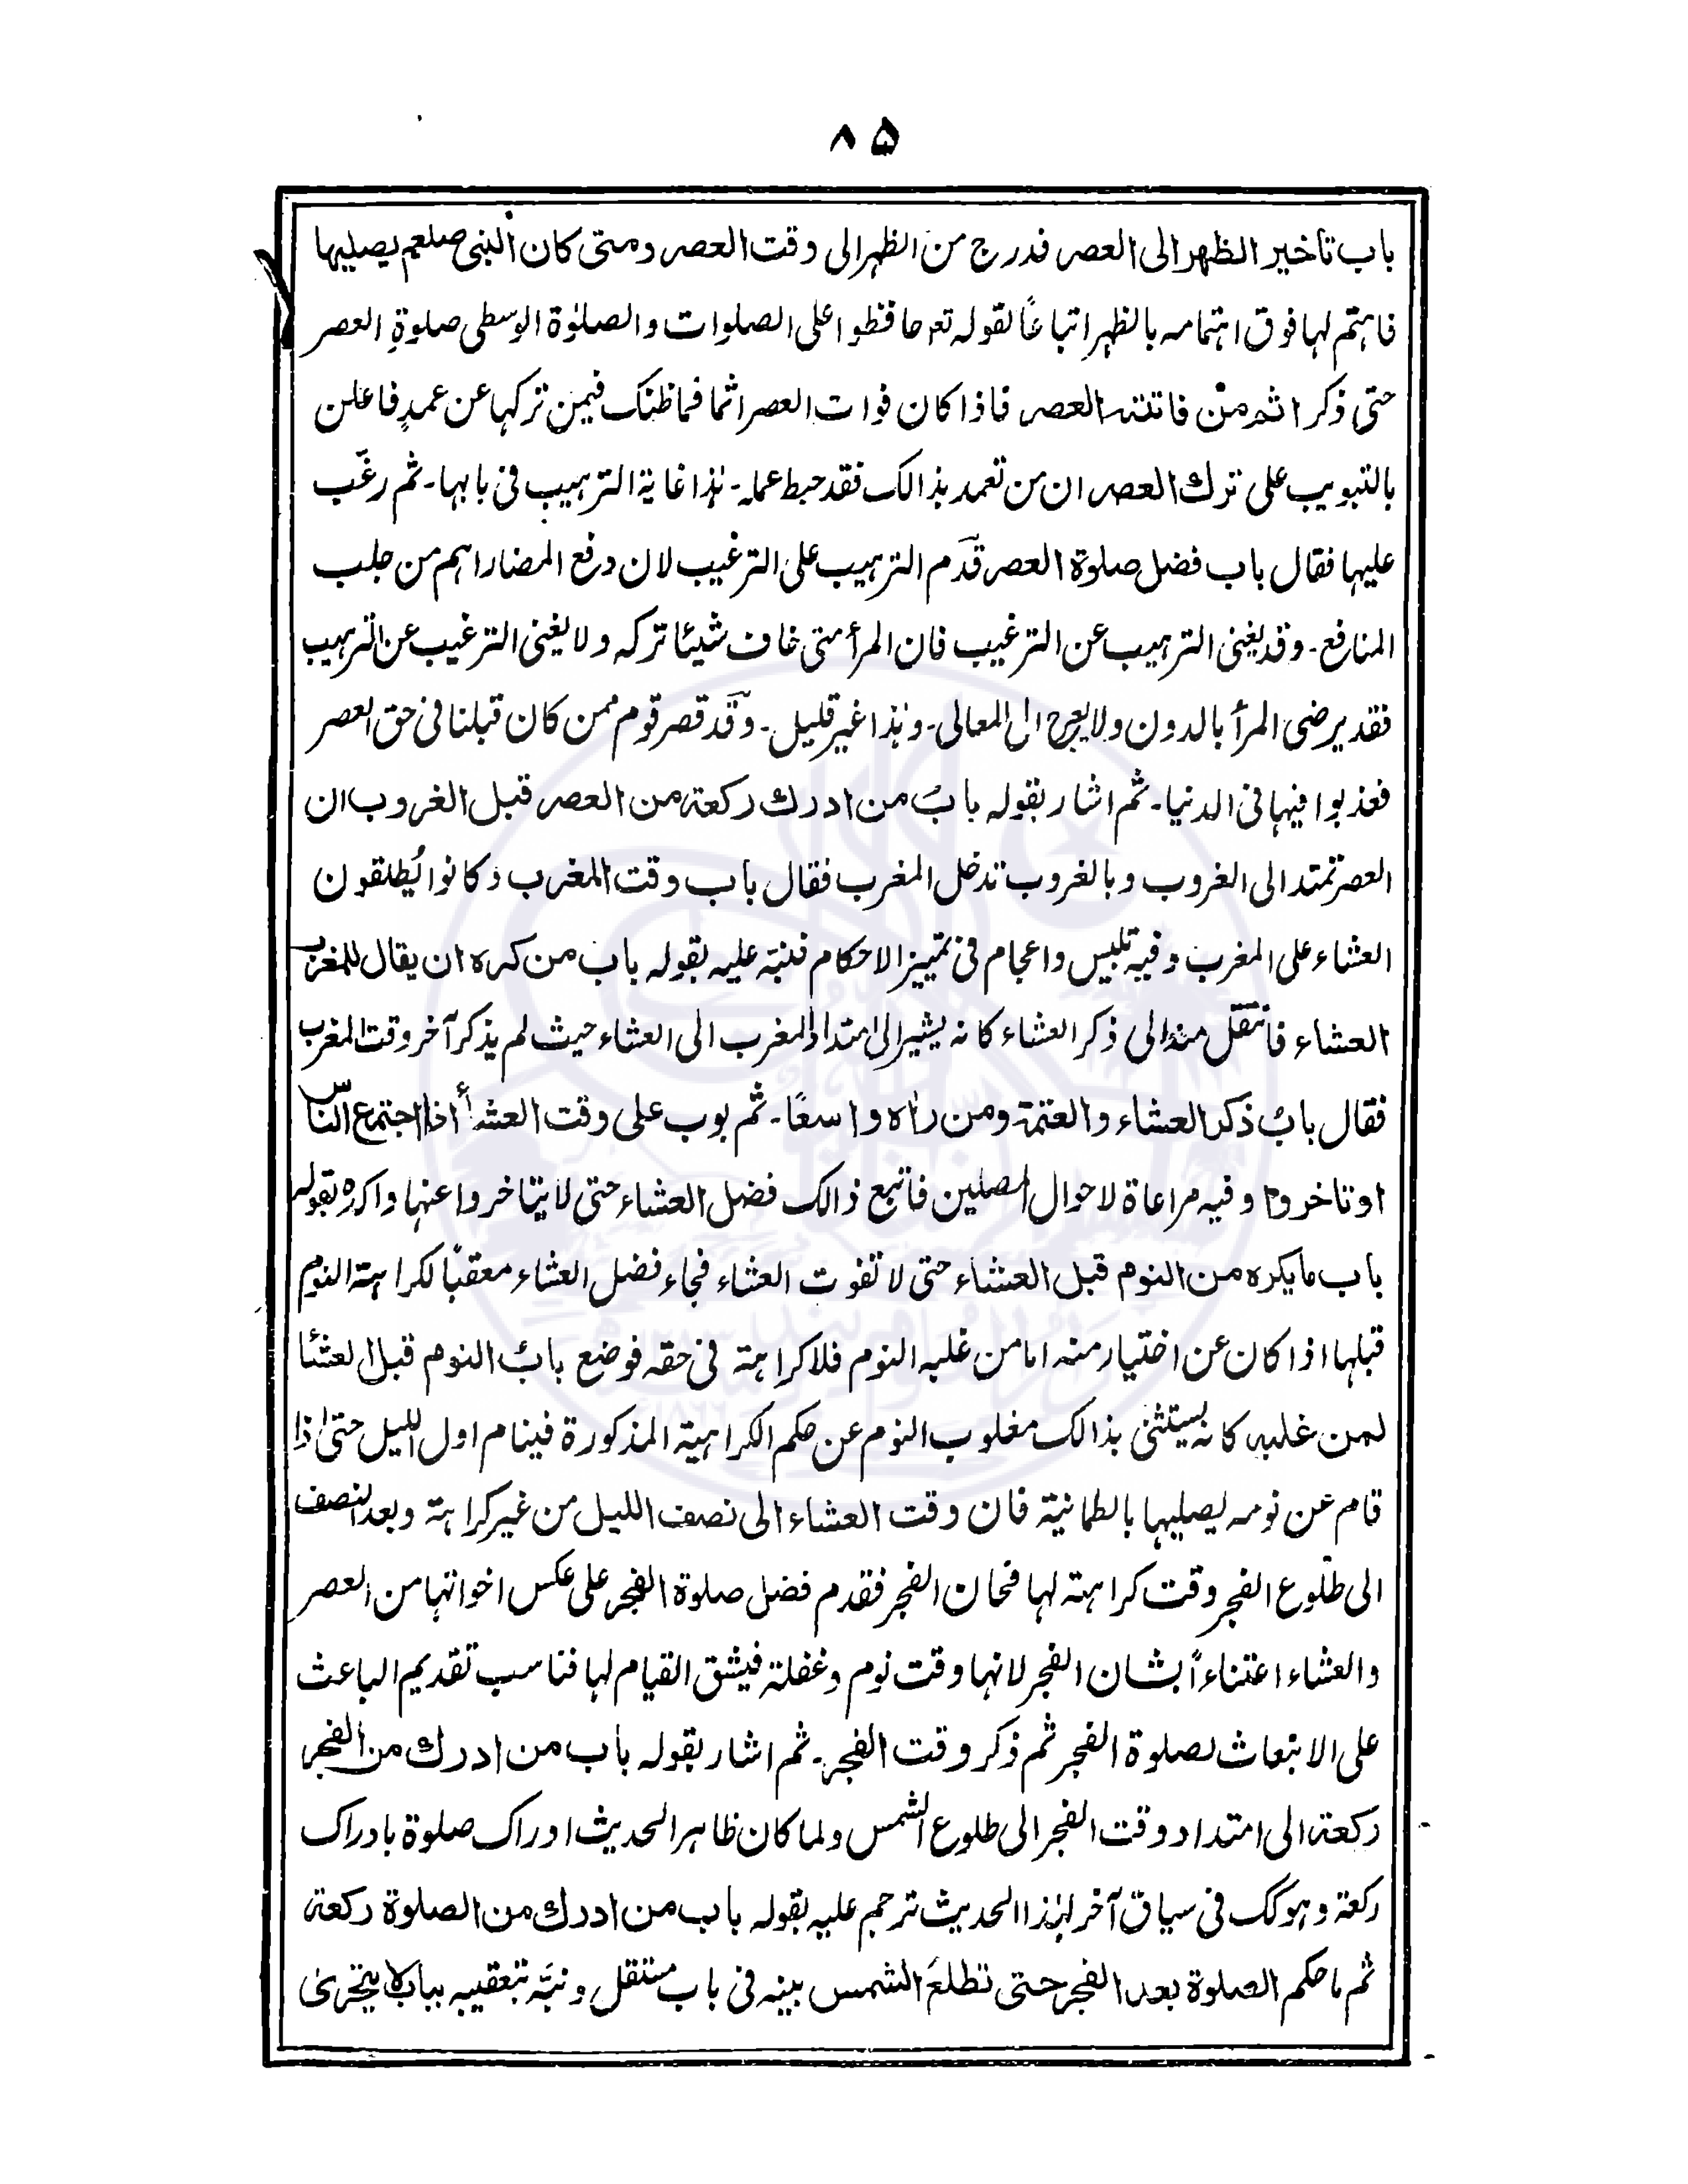 ۸۵
باب تاخیر الظهر الی العصر فدرج من الظهر الی وقت العصر ومتی کان النبی صلعم یصلیها
فاهتم لها فوق اهتمامه بالظهر اتباعًا لقوله تعہ حافظوا علی الصلوات والصلوٰة الوسطی صلوةِ العصر
حتی ذکر اثم من فاتته العصر فاذا کان فوات العصر اثما فما ظنک فیمن ترکها عن عمدٍ فاعلن
بالتبویب علی ترك العصر ان من تعمد بذالک فقد حبط عمله۔ هٰذا غایة الترهیب فی بابها۔ ثم رغّب
علیها فقال باب فضل صلوة العصر قدّم الترهیب علی الترغیب لان دفع المضار اهم من جلب
المنافع۔ وقد یغنی الترهیب عن الترغیب فان المرأ متی خاف شیئا ترکه ولا یغنی الترغیب عن الترهیب
فقد یرضی المرأ بالدون ولا یعرج الی المعالی۔ وهٰذا غیر قلیل۔ وقد قصر قوم ممن کان قبلنا فی حق العصر
فعذبوا فیها فی الدنیا۔ ثم اشار بقوله بابُ من ادرك رکعة من العصر قبل الغروب ان
العصر تمتد الی الغروب وبالغروب تدخل المغرب فقال باب وقت المغرب وکانوا یُطلقون
العشاء علی المغرب وفیه تلبیس واعجام فی تمییز الاحکام فنبّه علیه بقوله باب من کره ان یقال للمغرب
العشاء فانتقل منه الی ذکر العشاء کانه یشیر الی امتداد المغرب الی العشاء حیث لم یذکر آخر وقت المغرب
فقال بابُ ذکر العشاء والعتمة ومن رأه واسعًا۔ ثم بوب علی وقت العشأ اذا اجتمع الناس
او تاخروا وفیه مراعاة لاحوال المصلین فاتبع ذالک فضل العشاء حتی لا یتاخروا عنها واکده بقوله
باب ما یکره من النوم قبل العشاء حتی لا تفوت العشاء فجاء فضل العشاء معقبًا لکراهة النوم
قبلها اذا کان عن اختیار منه اما من غلبه النوم فلا کراهة فی حقه فوضع بابُ النوم قبل العشا
لمن غلبه کانه یستثنی بذالک مغلوب النوم عن حکم الکراهیة المذکورة فینام اول اللیل حتی اذا
قام عن نومه یصلیها بالطمانیة فان وقت العشاء الی نصف اللیل من غیر کراهة وبعد النصف
الی طلوع الفجر وقت کراهته لها فحان الفجر فقدم فضل صلوة الفجر علی عکس اخواتها من العصر
والعشاء اعتناءاً بشان الفجر لانها وقت نوم وغفلة فیشق القیام لها فناسب تقدیم الباعث
علی الانبعاث لصلوة الفجر ثم ذکر وقت الفجر۔ ثم اشار بقوله باب من ادرك من الفجر
رکعة الی امتداد وقت الفجر الی طلوع الشمس ولما کان ظاهر الحدیث ادراک صلوة بادراک
رکعة وهو کک فی سیاق آخر لهٰذا الحدیث ترجم علیه بقوله باب من ادرك من الصلوة رکعة
ثم ما حکم الصلوة بعد الفجر حتی تطلعَ الشمس بینه فی باب مستقل ونبّه بتعقیبه بباب لا یتحری